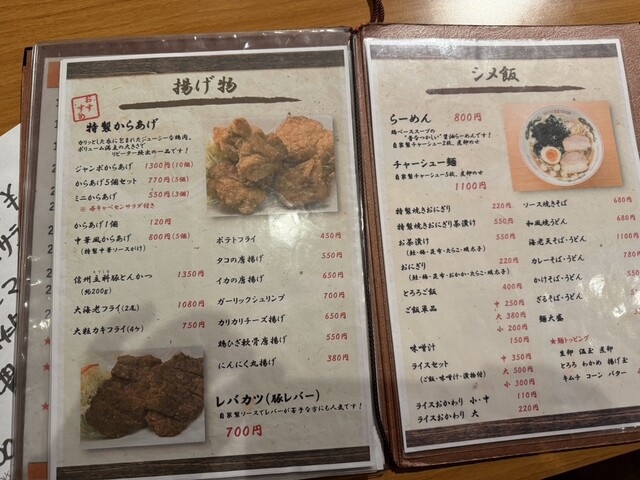 揚げ物
おすすめ
特製からあげ
カリッとした衣に包まれたジューシーな鶏肉。
ボリューム満点の大きさで
リピーター続出の一品です！
ジャンボからあげ 1300円(10個)
からあげ5個セット 770円(5個)
ミニからあげ 550円(3個)
※各キャベセンサラダ付き
からあげ1個 120円
中華風からあげ 800円(5個)
(特製中華ソースがけ)
信州立科豚とんかつ 1350円
(約200g)
大海老フライ(2尾) 1080円
大粒カキフライ(4ケ) 750円
ポテトフライ 450円
タコの唐揚げ 550円
イカの唐揚げ 600円
ガーリックシュリンプ 700円
カリカリチーズ揚げ 650円
鶏ひざ軟骨唐揚げ 550円
にんにく丸揚げ 380円
レバカツ(豚レバー)
自家製ソースでレバーが苦手な方にも人気です！
700円
シメ飯
らーめん 800円
鶏ベーススープの
"昔なつかしい"醤油らーめんです！
自家製チャーシュー2枚、煮卵のせ
チャーシュー麺
自家製チャーシュー5枚、煮卵のせ
1100円
特製焼きおにぎり 220円
特製焼きおにぎり茶漬け 550円
お茶漬け 550円
(鮭・梅・昆布・たらこ・明太子)
おにぎり 220円
(鮭・梅・昆布・おかか・たらこ・明太子)
とろろご飯 400円
ご飯単品 中 250円
大 380円
小 200円
味噌汁 150円
ライスセット 中 350円
(ご飯・味噌汁・漬物付) 大 500円
小 300円
ライスおかわり 小・中 110円
ライスおかわり 大 220円
ソース焼きそば 680円
和風焼うどん 680円
海老天そば・うどん 1100円
カレーそば・うどん
かけそば・うどん
ざるそば・うどん
麺大盛
★麺トッピング
生卵 温玉 煮卵
とろろ わかめ 揚げ玉
キムチ コーン バター